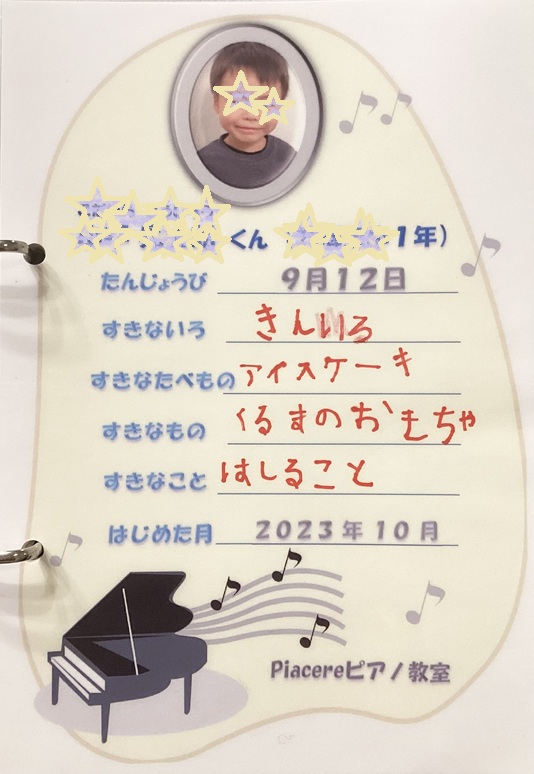 くん 1年)
たんじょうび 9月12日
すきないろ きんいろ
すきなたべもの アイスケーキ
すきなもの くるまのおもちゃ
すきなこと はしること
はじめた月 2023年10月
Piacereピアノ教室